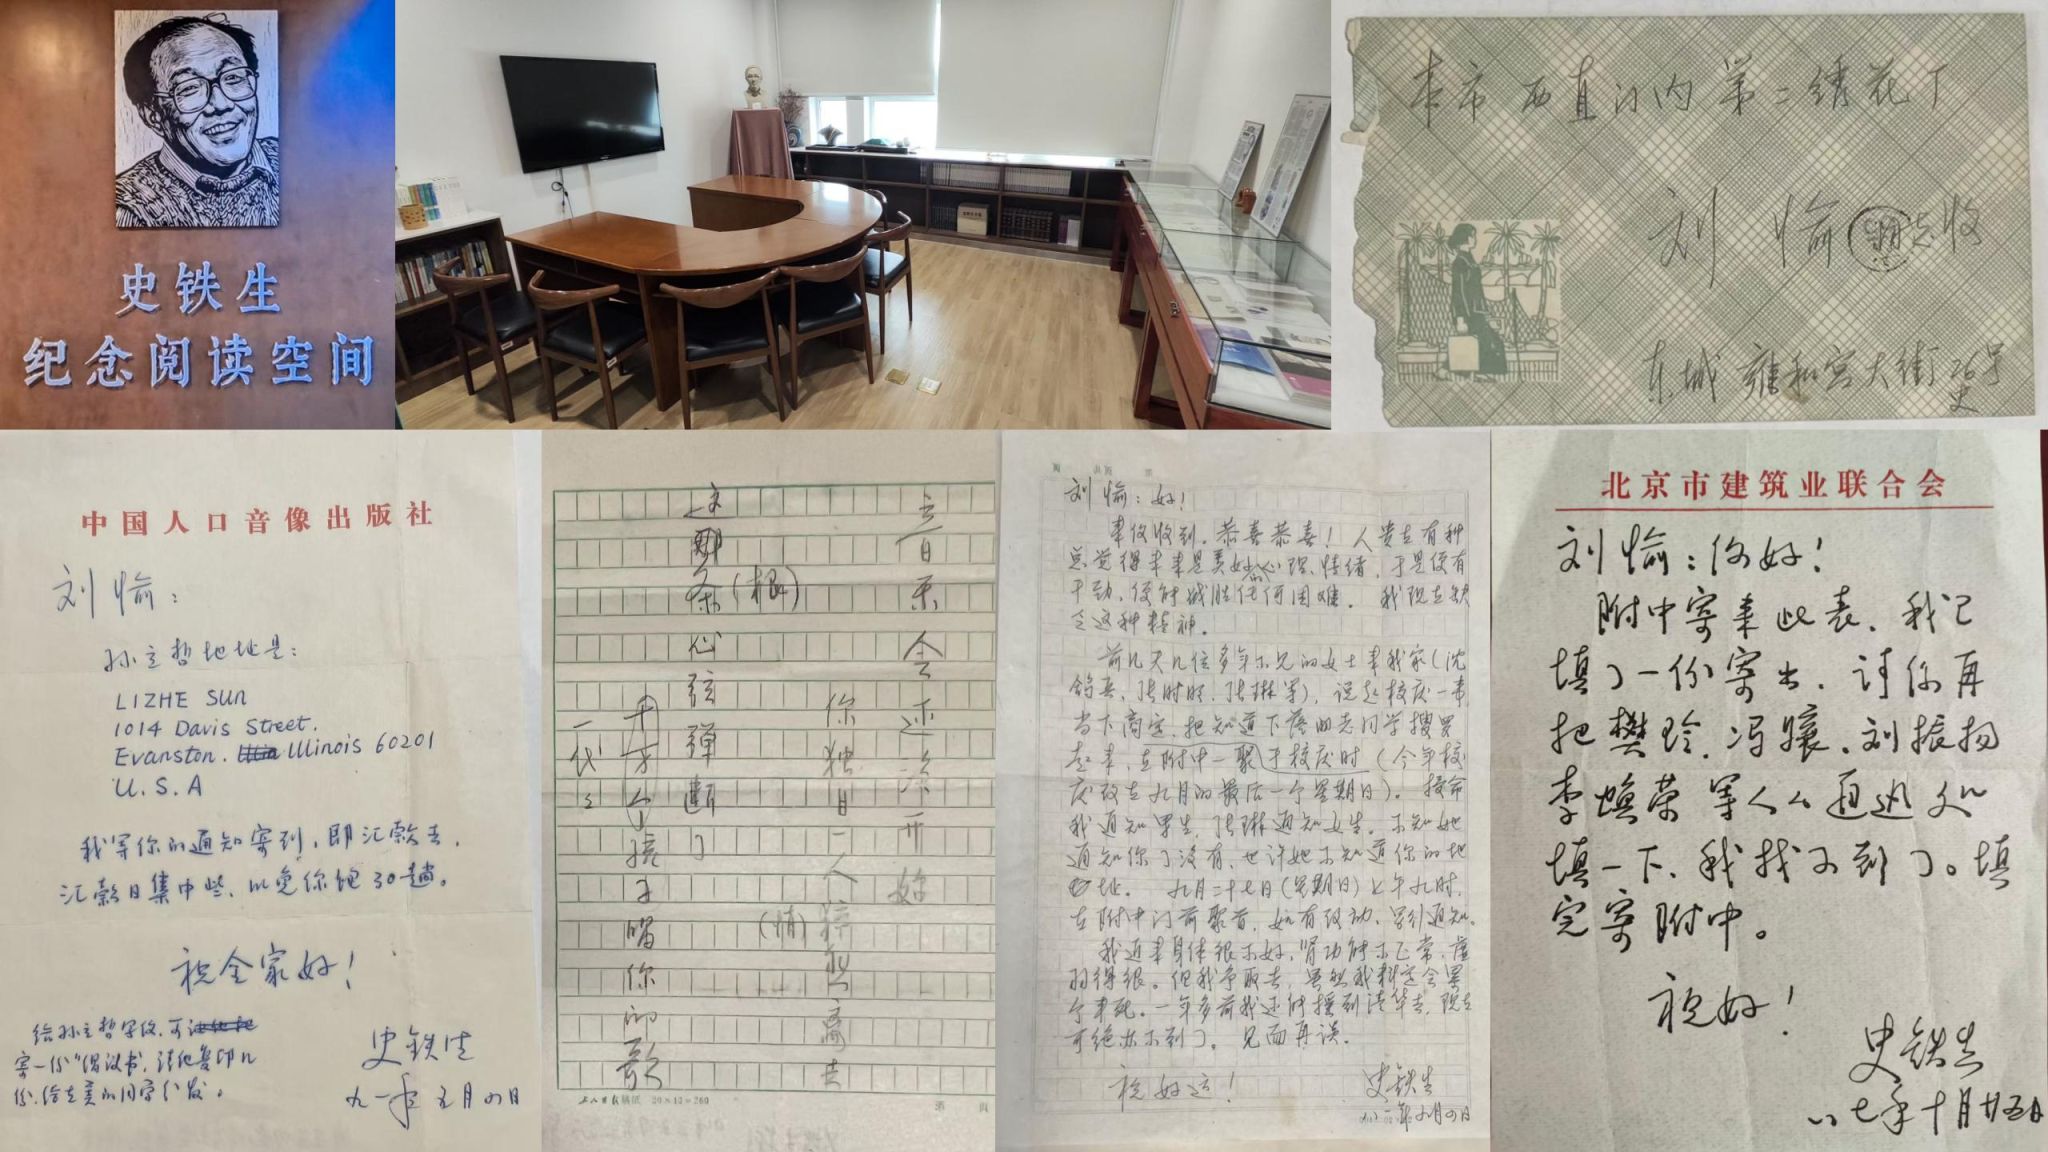 史铁生
纪念阅读空间
本市西直门内第二绣花厂
刘 愉 同志收
东城雍和宫大街26号
史
中国人口音像出版社
刘愉：
孙立哲地址是：
LIZHE SUN
1014 Davis Street.
Evanston. Illinois 60201
U.S.A
我等你的通知寄到，即汇款去，
汇款日集中些，以免你跑30趟。
祝全家好！
给孙立哲写信，可
寄一份"倡议书"，请他复印几
份，给在美的同学分发。
史铁生
九一年五月四日
音乐会还没开始
你独自一人 离去
心弦弹断了
十万个孩子唱你的歌
一代
20×13=260
刘愉：好！
来信收到。恭喜恭喜！人贵在有种
总觉得未来是美妙的心理、情绪，于是便有
干劲，便能战胜任何困难。我现在缺
乏这种精神。
前几天几位多年不见的女士来我家（沈
张琳等），说起校庆一事，
当下商定，把知道下落的老同学搜罗
起来，在附中一聚于校庆时（今年校
庆改在九月的最后一个星期日）。接命
我通知男生，张琳通知女生。不知她
通知你了没有，也许她不知道你的地
址。 九月二十七日（星期日）上午九时，
在附中门前聚首，如有改动，另行通知。
我近来身体很不好，肾功能不正常，虚
弱得很。但我争取去，虽然我料定会累
个半死。一年多前我还能摇到清华去，现在
可绝办不到了。见面再谈。
祝好运！
史铁生
年九月四日
北京市建筑业联合会
刘愉：你好！
附中寄来此表，我已
填了一份寄出，请你再
把樊玲、冯骧、刘振扬
李焕荣等人的通讯处
填一下，我找不到了。填
完寄附中。
祝好！
史铁生
八七年十月廿五日